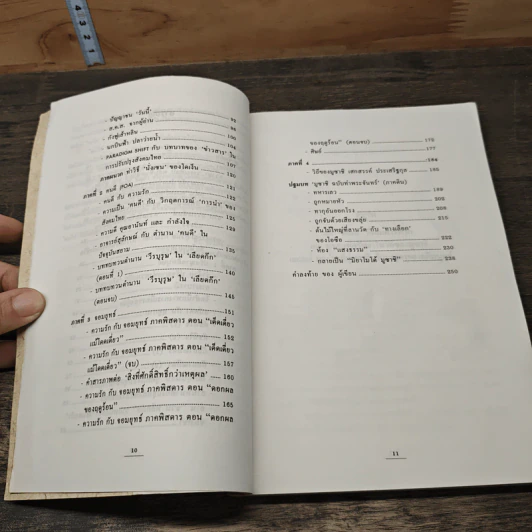 - ปัญญาชน 'วันนี้' 95
- ส.ห.ด. จากผู้อ่าน 98
- กังฟูเส้าหลิน 100
- นกบินฟ้า ปลาว่ายน้ำ 104
- PARADIGM SHIFT กับ บทบาทของ 'ข่าวสาร' ใน
การปรับปรุงสังคมไทย 107
ภาคที่ 2 คนดี
- คนดี กับ ความรัก 121
- ความเป็น "คนดี" กับ วิกฤตการณ์ "การนำ" ของ
สังคมไทย 125
- ความดี คุณอานันท์ และ กำลังใจ 131
- อาจารย์สุลักษณ์ กับ ตำนาน 'คนดี' ใน
ปัจจุบันสยาม 135
- บททบทวนตำนาน 'วีรบุรุษ' ใน 'เลียดก๊ก'
(ตอนที่ 1) 140
- บททบทวนตำนาน 'วีรบุรุษ' ใน 'เลียดก๊ก'
(ตอนจบ) 145
ภาคที่ 3 จอมยุทธ์ 151
- ความรัก กับ จอมยุทธ์ ภาคพิสดาร ตอน "เด็ดเดี่ยว
แม้โดดเดี่ยว" 152
- ความรัก กับ จอมยุทธ์ ภาคพิสดาร ตอน "เด็ดเดี่ยว
แม้โดดเดี่ยว" (จบ) 157
- คำสารภาพต่อ 'สิ่งที่ศักดิ์สิทธิ์กว่าเหตุผล' 160
- ความรัก กับ จอมยุทธ์ ภาคพิสดาร ตอน "ดอกผล
ของฤดูร้อน" 165
- ความรัก กับ จอมยุทธ์ ภาคพิสดาร ตอน "ดอกผล
10
ของฤดูร้อน" (ตอนจบ) 172
- ศิษย์
ภาคที่ 4 184
- วิถีของมูซาชิ เสกสรรค์ ประเสริฐกุล 186
ปฐมบท 'มูซาชิ ฉบับท่าพระจันทร์' (ภาคดิน)
- ทหารเลว
- ถูกหมายหัว
- ทารุกันออกโรง
- ถูกจับด้วยเสียงขลุ่ย 210
- ต้นไม้ใหญ่ที่ลานวัด กับ 'ทางเลือก'
ของโอซือ
- ห้อง "แสงธรรม" 230
- กลายเป็น "มิยาโมโต้ มูซาชิ"
คำลงท้าย ของ ผู้เขียน 250
11